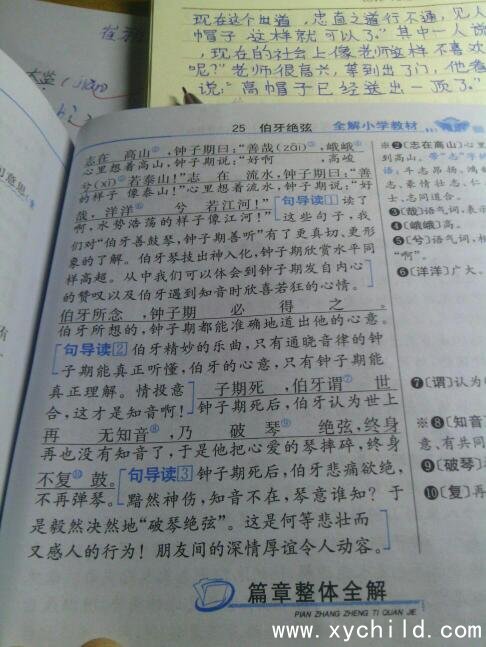 现在这个世道，忠直之道行不通，见人
帽子，这样就可以了。”其中一人说
，现在的社会上像老师这样不喜欢
呢？”老师很高兴，等到出了门，他看
说：“高帽子已经送出一顶了。”
25 伯牙绝弦 全解小学教材
志在 高山②,钟子期曰:“善哉(zāi)③,峨峨④
心里想着高山,钟子期说:“好啊 ,高峻
兮(xī)⑤若泰山!”志 在 流水,钟子期曰:“善
的样子 像泰山!”心里想着流水,钟子期说:“好
哉,洋洋⑥ 兮 若江河!”[句导读1]读了
啊,水势浩荡的样子像江河!” 这些句子,我
们对“伯牙善鼓琴,钟子期善听”有了更真切、更形
象的了解。伯牙琴技出神入化,钟子期欣赏水平同
样高超。从中我们可以体会到钟子期发自内心
的赞叹以及伯牙遇到知音时欣喜若狂的心情。]
伯牙所念 ,钟子期 必 得 之 。
伯牙所想的,钟子期都能准确地道出他的心意。
[句导读2]伯牙精妙的乐曲,只有通晓音律的钟
子期能真正听懂,伯牙的心意,只有钟子期能
真正理解。情投意 子期死 ,伯牙谓⑦ 世
合,这才是知音啊!] 钟子期死后,伯牙认为世上
再 无知音⑧,乃 破 琴⑨ 绝弦,终身
再也没有知音了,于是他把心爱的琴摔碎,终身
不复⑩ 鼓。[句导读3]钟子期死后,伯牙悲痛欲绝,
不再弹琴。 黯然神伤,知音不在,琴意谁知? 于
是毅然决然地“破琴绝弦”。这是何等悲壮而
又感人的行为! 朋友间的深情厚谊令人动容。]
篇章整体全解
PIAN ZHANG ZHENG TI QUAN JIE
※②(志在高山)心里
到高山。带“志”字的
语:斗志昂扬、
志、豪情壮志、仁
士、志同道合。
③(哉)语气词,表示
④(峨峨)高。
⑤(兮)语气词,相
“啊”。
⑥(洋洋)广大。
⑦(谓)认为
※⑧(知音)
意、有共同
⑨(破琴)
⑩(复)再
www.xychild.com